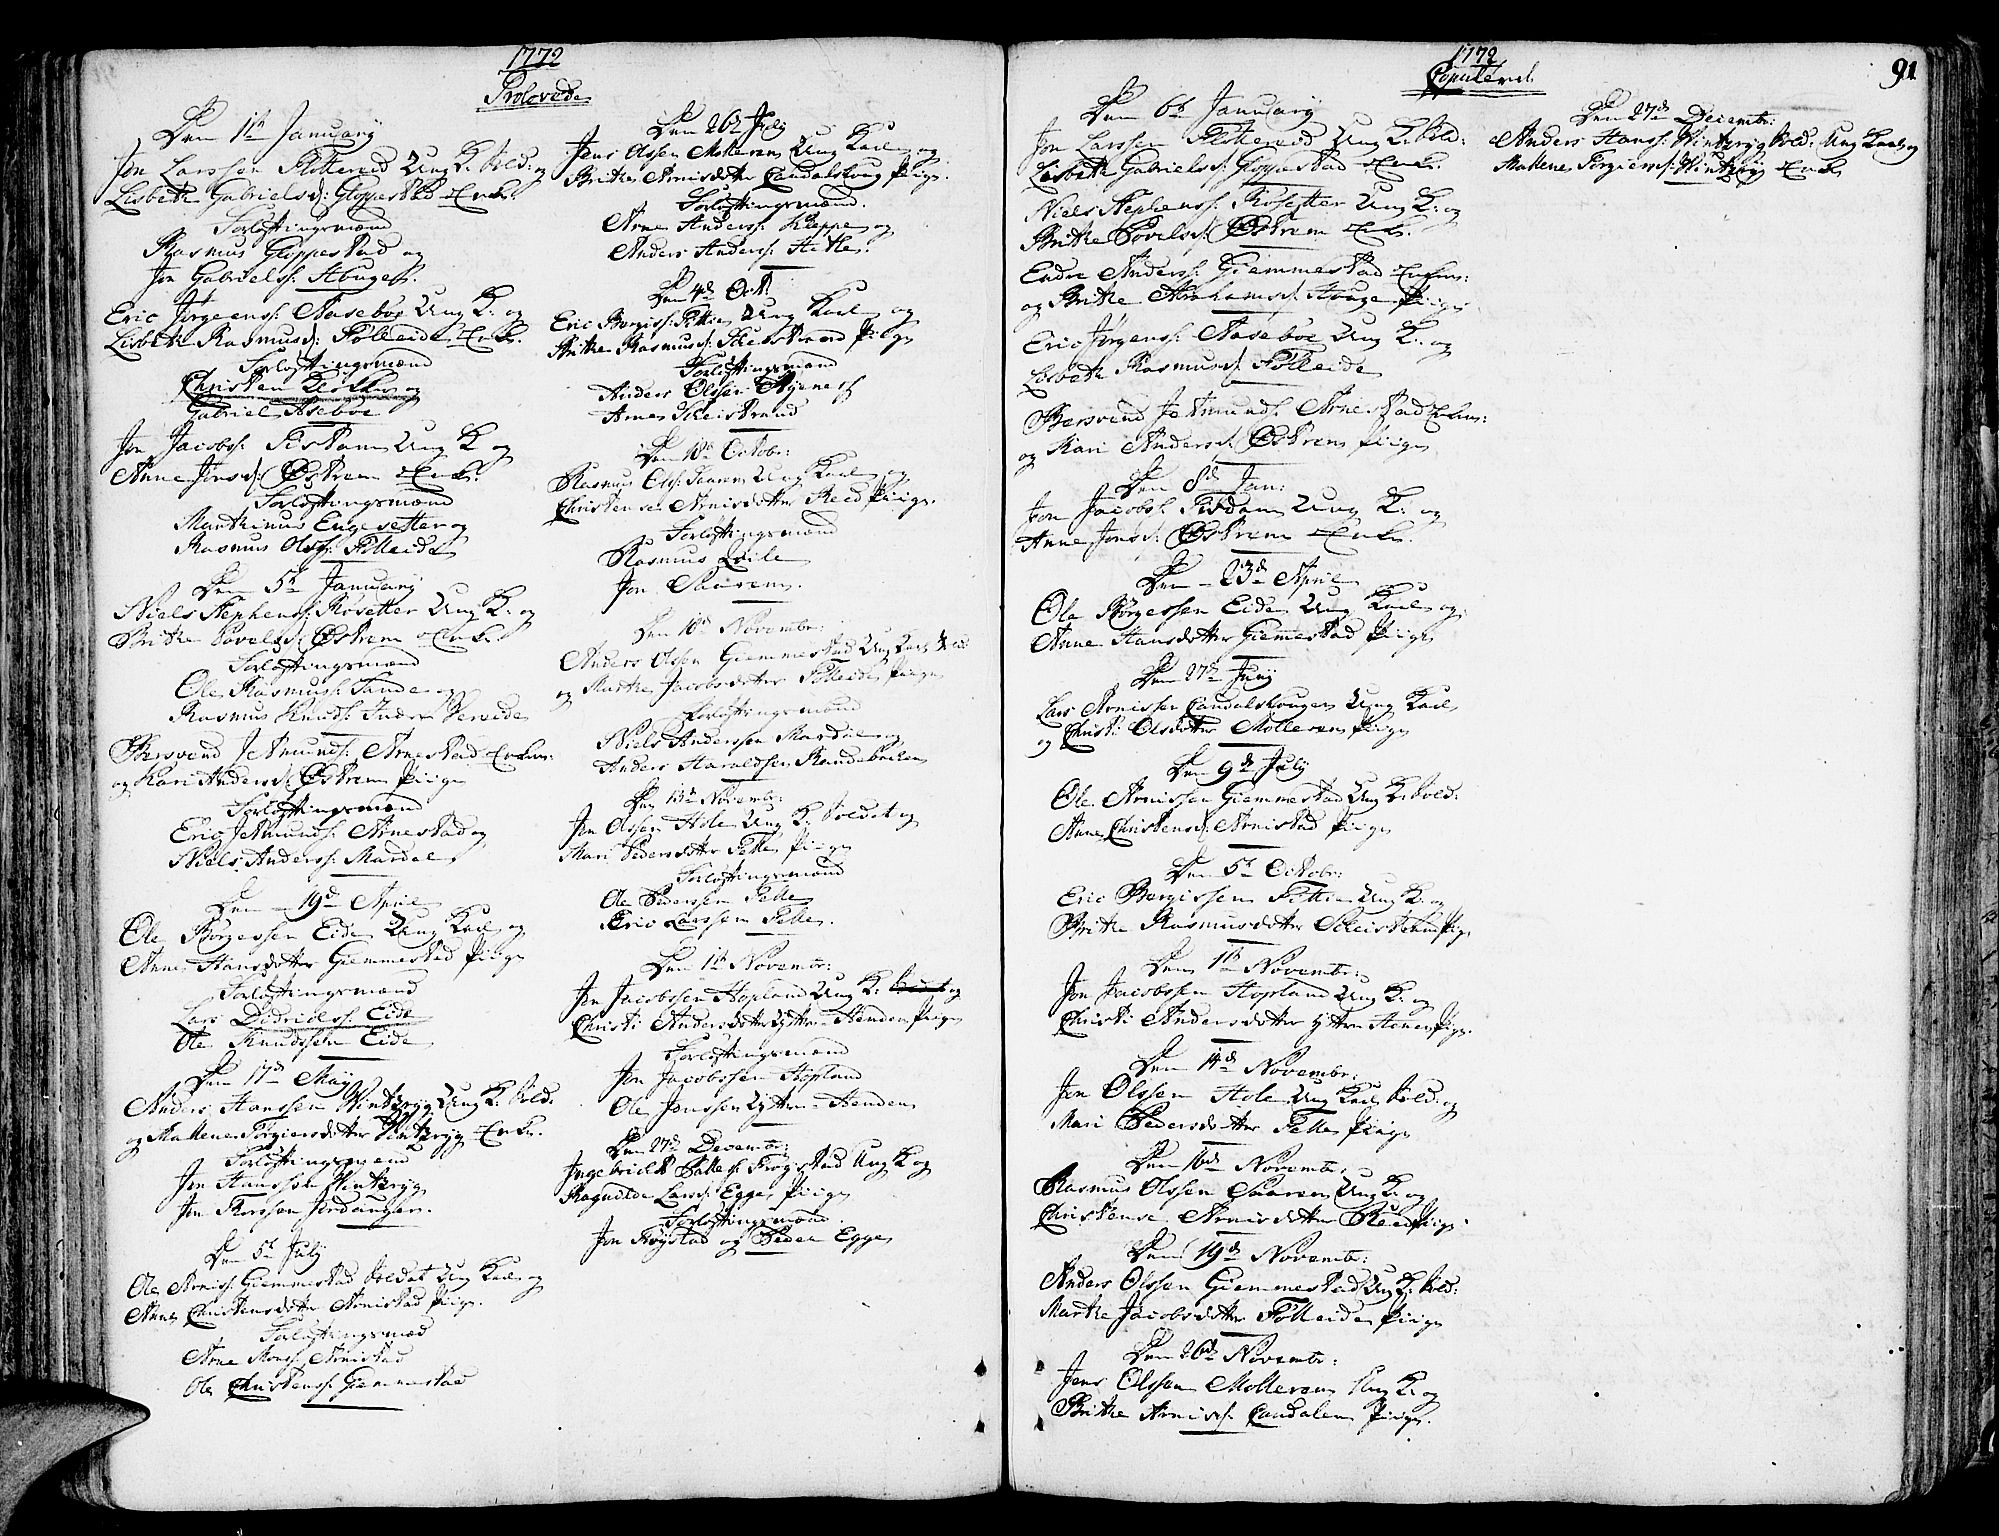 1772
Trolovede
Den 1te January
Jon Larssen Flottereid Ung K. Sold: og
Lisbeth Gabrielsd: Gloppestad Enke.
Forløftingsmænd
Rasmus Gloppestad og
Jon Gabriels: Houge
Eric Jørgens: Aasebøe Ung K. og
Lisbeth Rasmusd: Følleide Enke.
Forløftingsmænd
Christen Klokker og
Gabriel Asebøe
Jon Jacobs: Fisdam Ung K og
Anne Jonsd: Østrem Enke.
Forløftingsmænd
Manthinus Engesetter og
Rasmus Ols: Følleide
Den 5te January
Niels Stephens: Røsetter Ung K. og
Brithe Povelsd: Østrem Enke
Forløftingsmænd
Ole Rasmus: Sande og
Rasmus Knuds: Indre Vereide
Bersvend Jetmunds: Arnestad Enkem:
og Kari Andersd: Østrem Piige
Forløftingsmænd
Eric Jetmunds: Arnestad og
Niels Anders: Mardal
Den 19de April
Ole Børgessen Eide Ung Karl og
Anne Hansdotter Giemmestad Piige
Forløftingsmænd
Lars Didrichs: Eide
Ole Knudssen Eide
Den 17de May
Anders Hanssen Vintryg Ung K. Sold:
og Mallene Torgiersdotter Vintryg Enke.
Forløftingsmænd
Jon Hanssen Vintryg
Jon Thorssen Jordanger.
Den 5te July
Ole Arnis: Giemmestad Soldat Ung Karl og
Anne Christensdotter Arnistad Piige.
Forløftingsmæd
Arne Mons: Arnistad
Ole Christens: Giemmestad
Den 26de July
Jens Olssen Molleren Ung Karl og
Brithe Arnisdotter Candalshoug Piige.
Forløftingsmænd.
Arne Anders: Kleppe og
Anders Anders: Hetle.
Den 4de Oct.
Eric Børgis: Ung Karl og
Brithe Rasmusd: Scheistrand Piige
Forløftingsmænd
Anders Olssen Ryenes
Arne Scheistrand
Den 18de Octobr:
Rasmus Ols: Ung Karl og
Christense Arnisdotter Reed Piige.
Forløftingsmænd
Rasmus
Jon Saurem.
Den 10de Novembr:
Anders Olssen Giemmestad Ung Karl
og Marthe Jacobsdotter Følleide Piige
Forløftingsmænd
Niels Anderssen Mardal og
Anders Haraldsen Randebachen
Den 13de Novembr:
Jon Olssen Hole Ung K. Soldat og
Mari Pedersdotter Felle Piige
Forløftingsmænd
Ole Pederssen Felle
Eric Larssen Felle.
Den 1te Novembr:
Jon Jacobssen Hopland Ung K. og
Christi Andersdotter Yttre-Henden Piige
Forløftingsmænd
Jon Jacobssen Hopland
Ole Jonssen Yttre-Henden
Den 27de Decembr:
Ingebricht Palles: Frogstad Ung K og
Ragnilde Larsd: Egge Piige
Forløftingsmænd.
Jon Røystad og Peder Egge
1772
Copulered.
91
Den 6te January
Jon Larssen Flottereid Ung K. Sold:
Lisbeth Gabrielsd: Gloppestad Enke.
Niels Stephens: Røsetter Ung K. og
Brithe Povelsd: Østrem Enke.
Endre Anders: Giemmestad Enkem:
og Brithe Abrahamsd: Houge Piige
Eric Jørgens: Aasebøe Ung K. og
Lisbeth Rasmusd: Følleide
Bersvend Jetmunds: Arnestad Enkem:
og Kari Andersd: Østrem Piige.
Den 8de Jan:
Jon Jacobs: Fisdam Ung K. og
Anne Jonsd: Østrem Enke.
Den 23de April
Ole Børgessen Eide Ung Karl og
Anne Hansdotter Giemestad Piige
Den 27de Juny
Lars Arnissen Candalshougen Ung Karl
og Christi Olsdotter Molleren Piige
Den 9de July
Ole Arnissen Giemmestad Ung K. Sold:
Anne Christensd: Arnistad Piige
Den 5te Octobr:
Eric Børgissen Ung K. og
Brithe Rasmusdotter Scheistrand Piige
Den 1te Novembr:
Jon Jacobssen Hopland Ung K. og
Christi Andersdotter Yttre Henen Piige.
Den 14de Novembr:
Jon Olssen Hole Ung Karl Sold: og
Mari Pedersdotter Felle Piige
Den 16de Novembr:
Rasmus Olssen Saarem Ung K. og
Christense Arnisdotter Reed Piige
Den 19de Novembr:
Anders Olssen Giemmestad Ung K. Sold:
Marthe Jacobsdotter Følleide Piige
Den 26de Novembr:
Jens Olssen Molleren Ung K. og
Brithe Arnisd: Candalen Piige.
Den 27de Decembr:
Anders Hans: Vintryg Sold: Ung Karl og
Mallene Torgiersd: Vintryg Enke